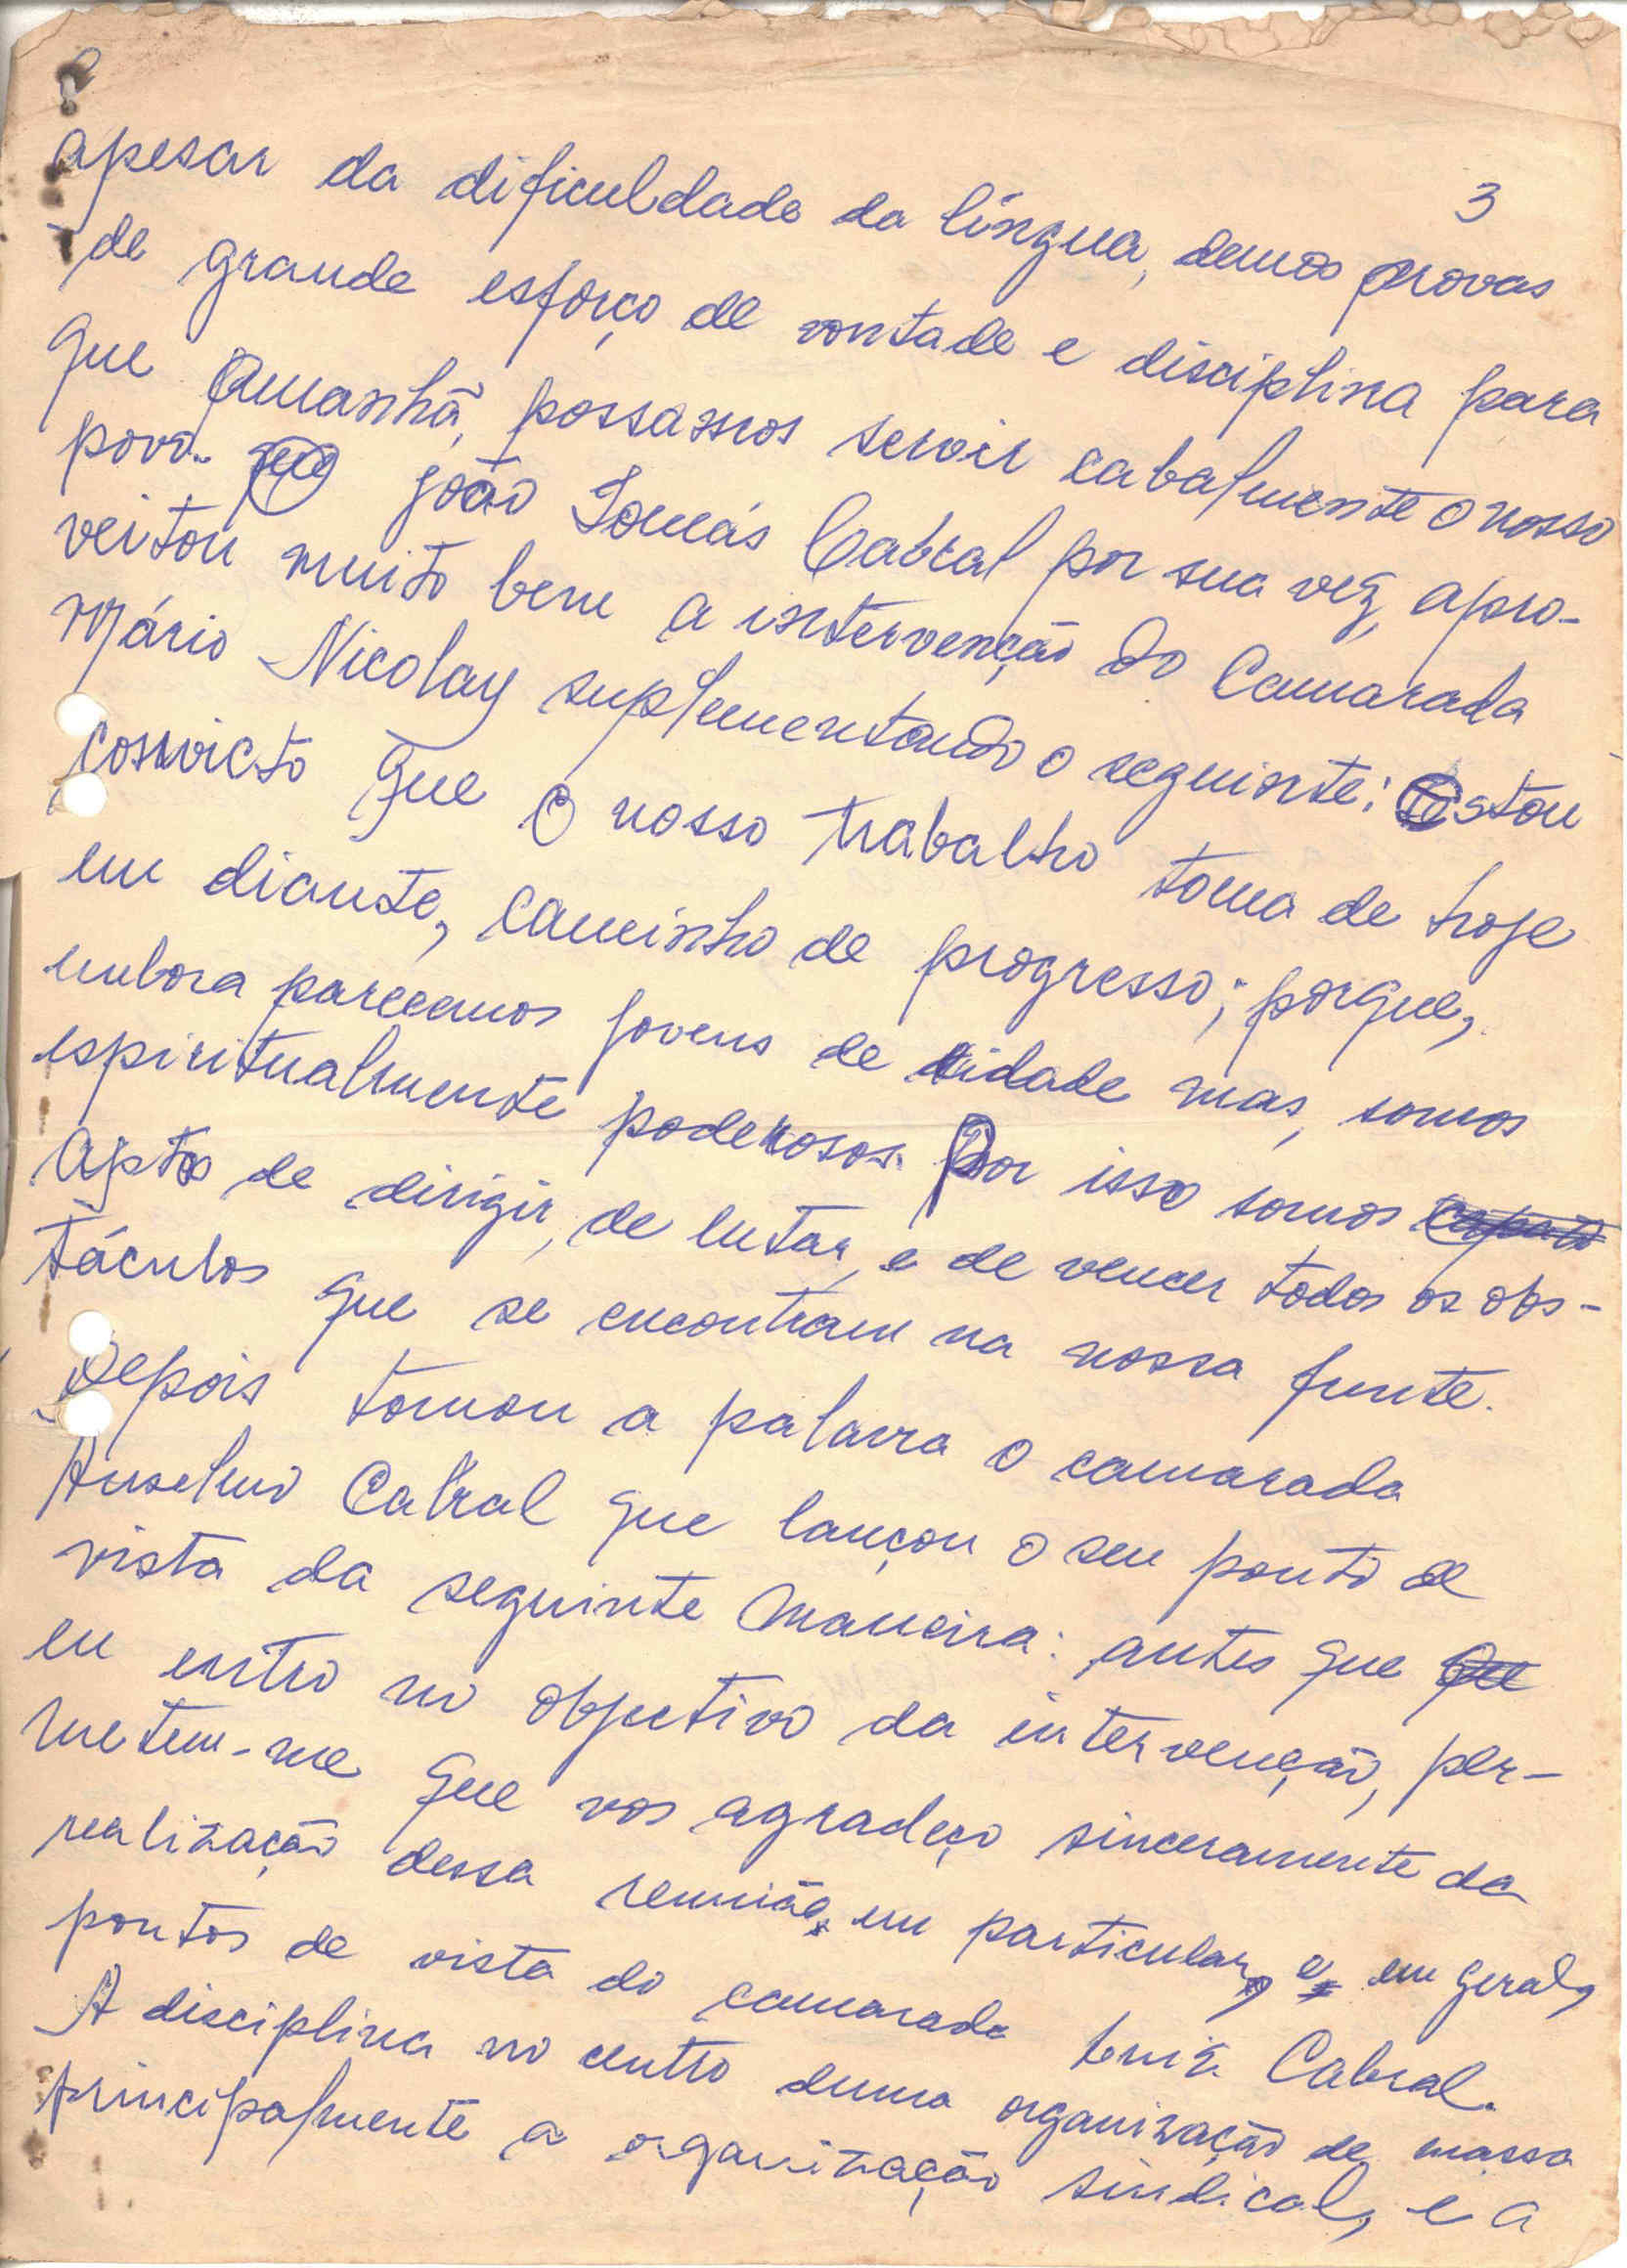 3
apesar da dificuldade da língua, demos provas
de grande esforço de vontade e disciplina para
que amanhã, possamos servir cabalmente o nosso
povo. que João Tomás Cabral por sua vez, apro-
veitou muito bem a intervenção do Camarada
Mário Nicolay suplementando o seguinte: Estou
convicto que o nosso trabalho toma de hoje
em diante, caminho de progresso; porque,
embora parecemos jovens de idade mas, somos
espiritualmente poderosos. Por isso somos
aptos de dirigir, de lutar, e de vencer todos os obs-
táculos que se encontram na nossa frente.
Depois tomou a palavra o camarada
Anselmo Cabral que lançou o seu ponto de
vista da seguinte maneira: antes que que
eu entro no objectivo da intervenção, per-
metem-me que vos agradeço sinceramente da
realização dessa reunião, em particular, e, em geral,
pontos de vista do camarada Luiz Cabral.
A disciplina no centro duma organização de massa
principalmente a organização sindical, e a